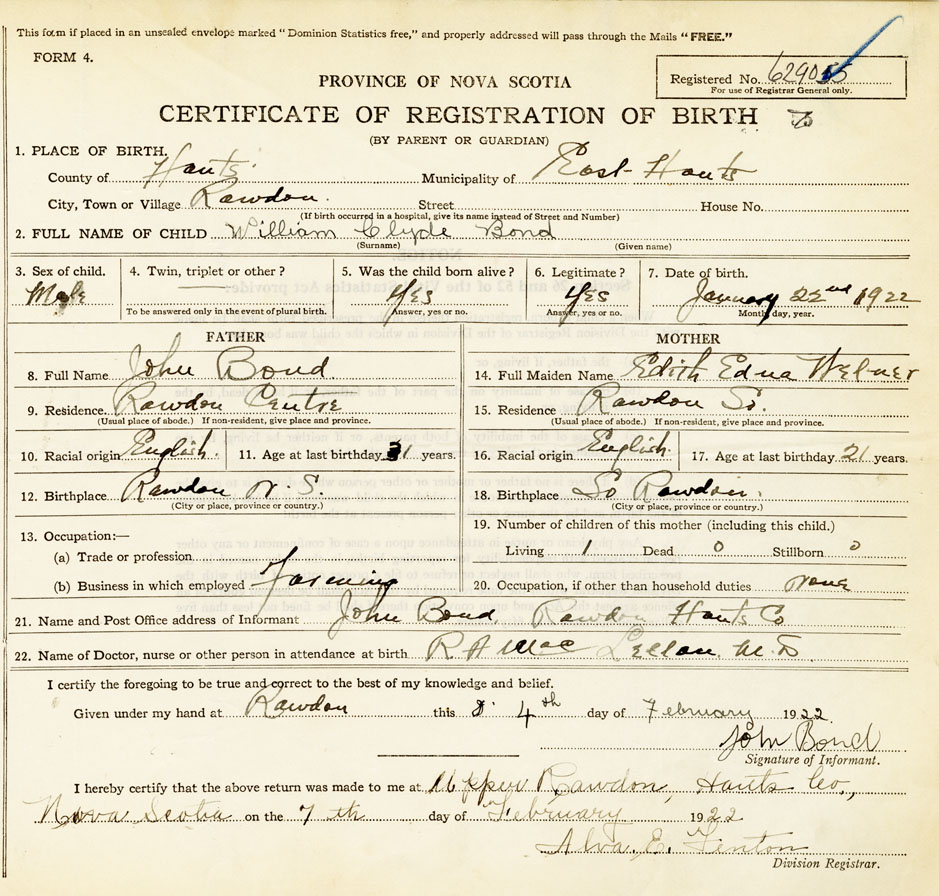 This form if placed in an unsealed envelope marked "Dominion Statistics free," and properly addressed will pass through the Mails "FREE."
FORM 4.
Registered No. 629055
For use of Registrar General only.
PROVINCE OF NOVA SCOTIA
CERTIFICATE OF REGISTRATION OF BIRTH
(BY PARENT OR GUARDIAN)
1. PLACE OF BIRTH.
County of Hants Municipality of East Hants
City, Town or Village Rawdon Street House No.
(If birth occurred in a hospital, give its name instead of Street and Number)
2. FULL NAME OF CHILD William Clyde Bond
(Surname) (Given name)
3. Sex of child. 4. Twin, triplet or other? 5. Was the child born alive? 6. Legitimate? 7. Date of birth.
Male Yes Yes January 22nd 1922
To be answered only in the event of plural birth. Answer, yes or no. Answer, yes or no. Month, day, year.
FATHER MOTHER
8. Full Name John Bond 14. Full Maiden Name Edith Edna
9. Residence. Rawdon Centre 15. Residence Rawdon So.
(Usual place of abode.) If non-resident, give place and province. (Usual place of abode.) If non-resident, give place and province.
10. Racial origin English. 11. Age at last birthday 31 years. 16. Racial origin English 17. Age at last birthday 21 years.
12. Birthplace Rawdon N. S. 18. Birthplace So Rawdon.
(City or place, province or country.) (City or place, province or country.)
13. Occupation:— 19. Number of children of this mother (including this child.)
(a) Trade or profession Living 1 Dead 0 Stillborn 0
(b) Business in which employed Farming 20. Occupation, if other than household duties none
21. Name and Post Office address of Informant John Bond, Rawdon Hants Co
22. Name of Doctor, nurse or other person in attendance at birth R A Mac Lellan M.D.
I certify the foregoing to be true and correct to the best of my knowledge and belief.
Given under my hand at Rawdon this 4th day of February 1922
John Bond
Signature of Informant.
I hereby certify that the above return was made to me at Upper Rawdon, Hants Co.,
Nova Scotia on the 7th day of February 1922
Alva E. Fenton
Division Registrar.